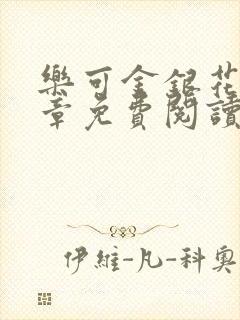 樂可金銀花
章免費閱讀
伊維-凡-科奧